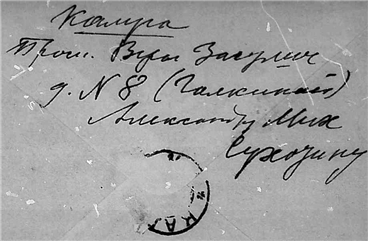 Калуга
Веры Засулич
д. N 8 (Галкиной)
Александру Мих
Сухозину
КАЛ